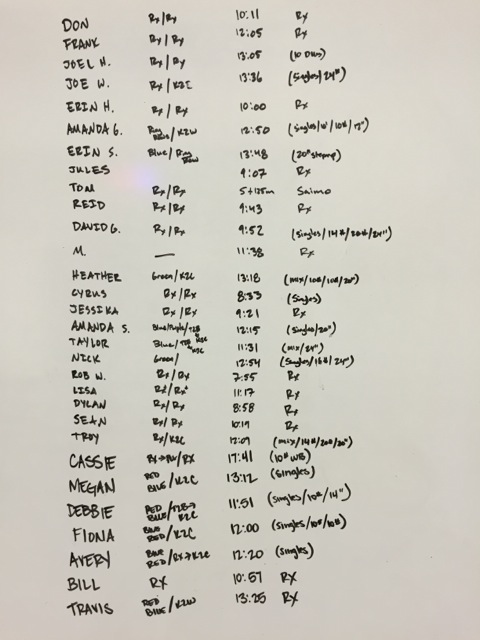 DON Rx/Rx 10:11 Rx
FRANK Rx/Rx 12:05 Rx
JOEL H. Rx/Rx 13:05 (10 DUs)
JOE W. Rx/K2E 13:36 (Singles/24")
ERIN H. Rx/Rx 10:00 Rx
AMANDA G. Ring Rows/K2W 12:50 (singles/W/10#/12")
ERIN S. Blue/Ring Row 13:48 (20" stepup)
JULES 9:07 Rx
TOM Rx/Rx 5+125m Saimo
REID Rx/Rx 9:43 Rx
DAVID G. Rx/Rx 9:52 (Singles/14#/20#/24")
M. — 11:38 Rx
HEATHER Green/K2C 13:18 (mix/10#/10#/20")
CYRUS Rx/Rx 8:33 (Singles)
JESSIKA Rx/Rx 9:21 Rx
AMANDA S. Blue/Purple/T2B→K2C 12:15 (Singles/20")
TAYLOR Blue/T2B→K2C 11:31 (mix/24")
NICK Green/ 12:54 (Singles/16#/24")
ROB W. Rx/Rx 7:55 Rx
LISA Rx/Rx 11:17 Rx
DYLAN Rx/Rx 8:58 Rx
SEAN Rx/Rx 10:19 Rx
TROY Rx/K2C 12:09 (mix/14#/20#/20")
CASSIE Rx→PU/RX 17:41 (10# WB)
MEGAN RED BLUE/K2C 13:12 (singles)
DEBBIE RED BLUE/T2B→K2C 11:51 (singles/10#/14")
FIONA BLUE RED/K2C 12:00 (singles/10#/10#)
AVERY BLUE RED/RX→K2C 12:20 (singles)
BILL RX 10:57 RX
TRAVIS RED BLUE/K2W 13:25 RX